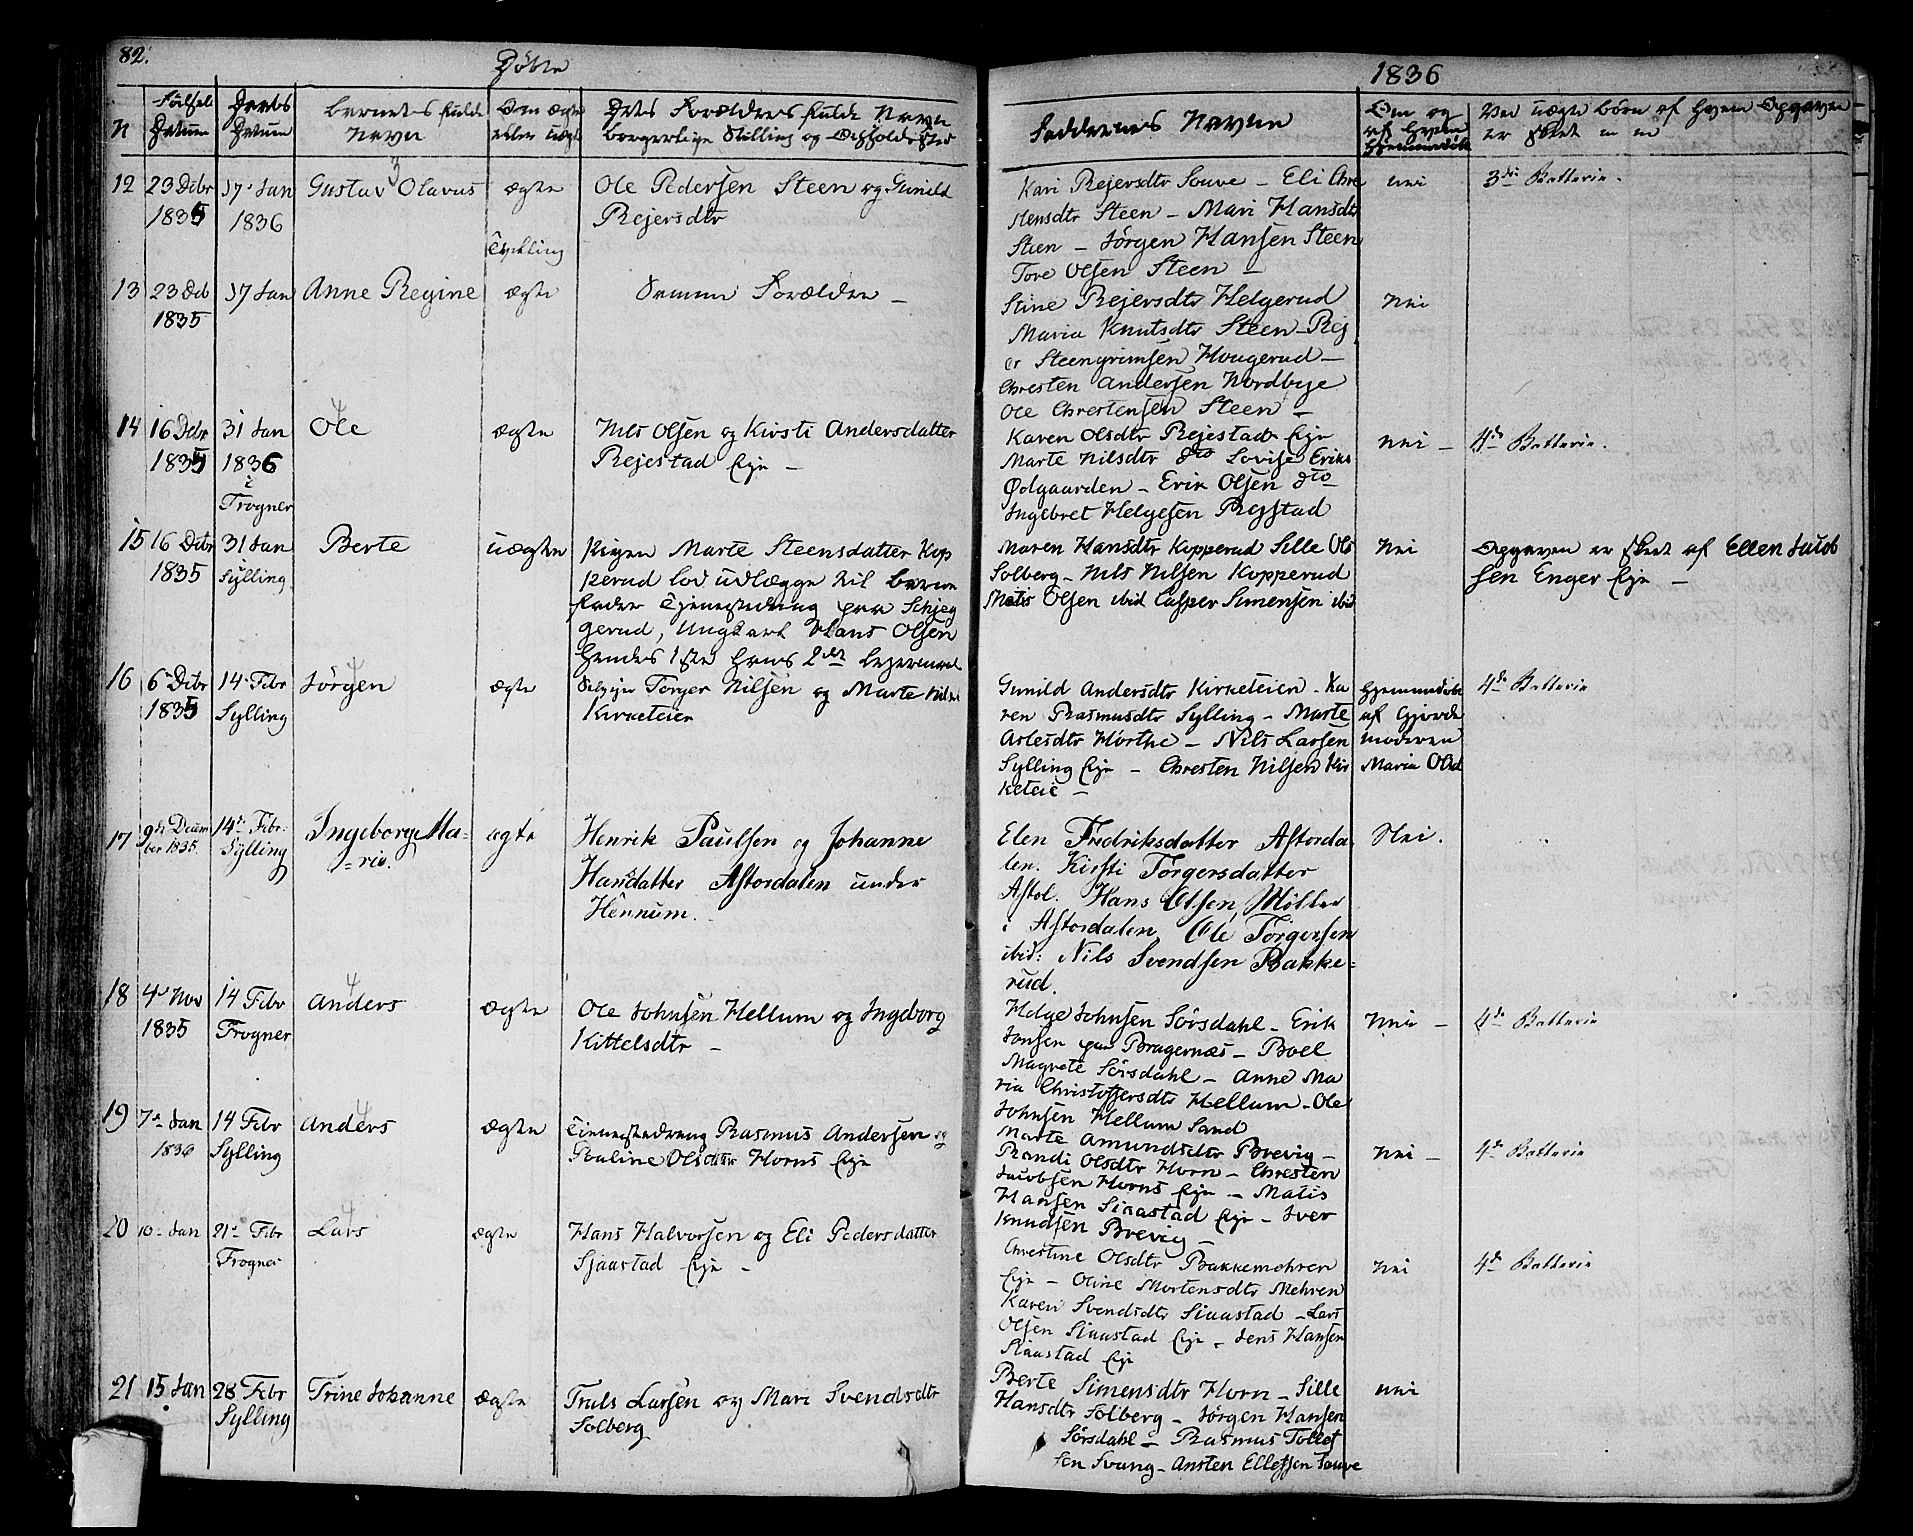 82.
Döbte
1836
N
Födsels Datum
Daabs Datum
Barnets fulde Navn
Om ægte eller uægte
Dets Forældres fulde Navn borgerlige Stilling og Opholdssted
Faddernes Navne
Om og af hvem hjemmedöbt
Ved uægte börn af hvem Opgaven er skeet m m
12 23 Decbr 1835
17 Jan 1836
Gustav Olavus
3
ægte
Tvilling
Ole Pedersen Steen og Gunild
Rejersdtr
Kari Rejersdtr Souve - Eli Chre
stensdtr Steen - Mari Hansdtr
Steen - Jörgen Hansen Steen
Tore Olsen Steen -
nei
3die Batterie.
13 23 Deb 1835
17 Jan
Anne Regine
ægte
Samme Forældre -
Stine Rejersdtr Helgerud
Maria Knutsdtr Steen - Rej
er Steengrimsen Hougerud -
Chresten Andersen Nordbye
Ole Chrestensen Steen -
Nei
14 16 Debr 1835
31 Jan 1836 i Frogner
Ole
4
ægte
Nils Olsen og Kirsti Andersdatter
Rejestad Eje -
Karen Olsdtr Rejestad Eje
Marte Nilsdtr dto Lovise Eriks
Ødgaarden - Erik Olsen dto
Ingebret Helgesen Rejstad
Nei -
4de Batterie.
15 16 Debr 1835
31 Jan Sylling
Berte
uægte
Pigen Marte Steensdatter Kop
perud lod udlægge til barne
fader Tjenestedreng paa Schjeg
gerud, Ungkarl Hans Olsen
hendes 1ste hans 2det lejermaal
Maren Hansdtr Kopperud Sille Ols
Solberg - Nils Nilsen Kopperud
Matis Olsen ibid Casper Simensen ibid
Nei
Opgaven er skeet af Ellen Jacob
sen Enger Eje -
16 6 Debr 1835
14 Febr Sylling
Jörgen
4
ægte
Selvejer Torger Nilsen og Marte
Kirketeier
Gunild Andersdtr Kirketeien - Ka
ren Rasmusdtr Sylling - Marte
Aslesdtr Hörthe - Nils Larsen
Sylling Eje - Chresten Nilsen Kir
keteie -
hjemmedöbt
af Gjorde
moderen
Maria Olsd
4de Batterie
17 9de Decem
ber 1835.
14de Febr. Sylling
Ingeborg Ma-
-rie.
ægte
Henrik Paulsen og Johanne
Hansdatter Astordalen under
Hennum.
Elen Fredriksdatter Astorda-
len. Kirsti Törgersdatter
Astol. Hans Olsen Möller
i Astordalen, Ole Törgersen
ibid: Nils Svendsen Bakke=
rud.
Nei.
18 4de Nov 1835
14 Febr Frogner
Anders
4
ægte
Ole Johnsen Hellum og Ingeborg
Kittelsdtr -
Helge Johnsen Sörsdahl - Erik
Jonsen paa Bragernæs - Boel
Magrete Sörsdahl - Anne Ma
ria Christoffersdtr Hellum - Ole
Johnsen Hellum Sand
Nei -
4de Batterie
19 7de Jan 1836
14 Febr Sylling
Anders
4
ægte
Tienestedreng Rasmus Andersen og
Pauline Olsdatter Horns Eje
Marte Amundsdtr Brevig -
Randi Olsdtr Horn - Chresten
Jacobsen Horns Eje - Matis
Hansen Siaastad Eje - Iver
Knudsen Brevig -
Nei -
4de Batterie
20 10. Jan
21. Febr Frogner
Lars
4
ægte
Hans Halvorsen og Eli Pedersdatter
Sjaastad Eje -
Chrestine Olsdtr Bakkemohren
Eje - Oline Mortensdtr Mehren
Karen Svendsdtr Siaastad - Lars
Olsen Siaastad Eje - Jens Hansen
Siaastad Eje
nei
4de Batterie
21 15 Jan
28 Febr Sylling
Trine Johanne
ægte
Truls Larsen og Mari Svendsdtr
Solberg
Berte Simensdtr Horn - Sille
Hansdtr Solberg - Jörgen Hansen
Sörsdahl - Rasmus Tollef
sen Svang - Ansten Ellefsen Souve
nei